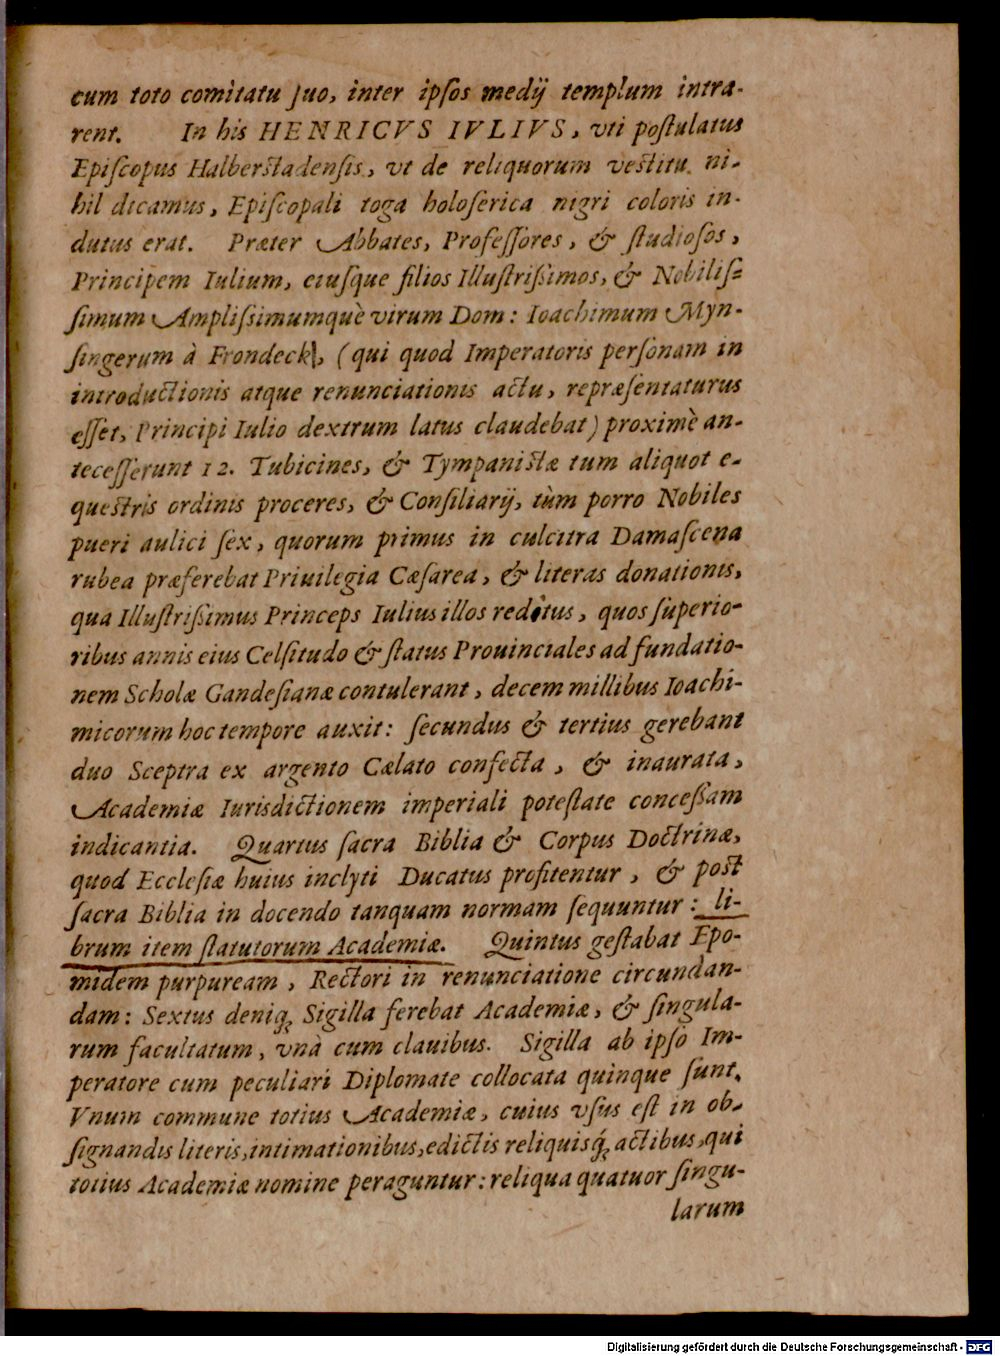 cum toto comitatu ſuo, inter ipſos medij templum intra-
rent. In his HENRICVS IVLIVS, vti poſtulatus
Epiſcopus Halberſtadenſis, vt de reliquorum veſtitu ni-
hil dicamus, Epiſcopali toga holoſerica nigri coloris in-
dutus erat. Præter Abbates, Profeſſores, & ſtudioſos,
Principem Iulium, eiuſque filios Illuſtriſsimos, & Nobiliſ-
ſimum Ampliſsimumquè virum Dom: Ioachimum Myn-
ſingerum à Frondeck, (qui quod Imperatoris perſonam in
introductionis atque renunciationis actu, repræſentaturus
eſſet, Principi Iulio dextrum latus claudebat) proximè an-
teceſſerunt 12. Tubicines, & Tympaniſtæ tum aliquot e-
queſtris ordinis proceres, & Conſiliarij, tùm porro Nobiles
pueri aulici ſex, quorum primus in culcitra Damaſcena
rubea præferebat Priuilegia Cæſarea, & literas donationis,
qua Illuſtriſsimus Princeps Iulius illos reditus, quos ſuperio-
ribus annis eius Celſitudo & ſtatus Prouinciales ad fundatio-
nem Scholæ Gandeſianæ contulerant, decem millibus Ioachi-
micorum hoc tempore auxit: ſecundus & tertius gerebant
duo Sceptra ex argento Cælato confecta, & inaurata,
Academiæ Iurisdictionem imperiali poteſtate conceſsam
indicantia. Quartus ſacra Biblia & Corpus Doctrinæ,
quod Eccleſiæ huius inclyti Ducatus profitentur, & poſt
ſacra Biblia in docendo tanquam normam ſequuntur: li-
brum item ſtatutorum Academiæ. Quintus geſtabat Epo-
midem purpuream, Rectori in renunciatione circundan-
dam: Sextus deniq; Sigilla ferebat Academiæ, & ſingula-
rum facultatum, vnà cum clauibus. Sigilla ab ipſo Im-
peratore cum peculiari Diplomate collocata quinque ſunt.
Vnum commune totius Academiæ, cuius vſus eſt in ob-
ſignandis literis, intimationibus, edictis reliquisq́; actibus, qui
totius Academiæ nomine peraguntur: reliqua quatuor ſingu-
larum
Digitalisierung gefördert durch die Deutsche Forschungsgemeinschaft - DFG